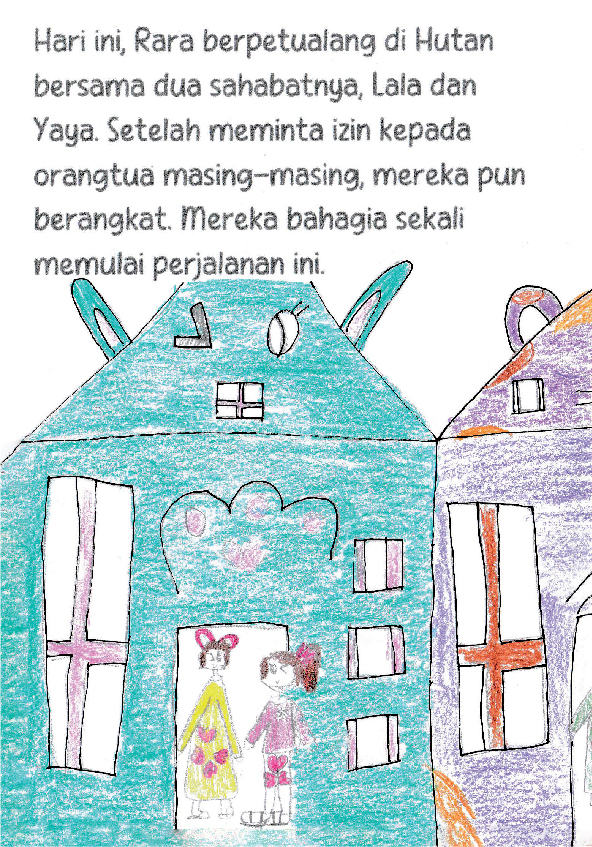 Hari ini, Rara berpetualang di Hutan
bersama dua sahabatnya, Lala dan
Yaya. Setelah meminta izin kepada
orangtua masing-masing, mereka pun
berangkat. Mereka bahagia sekali
memulai perjalanan ini.